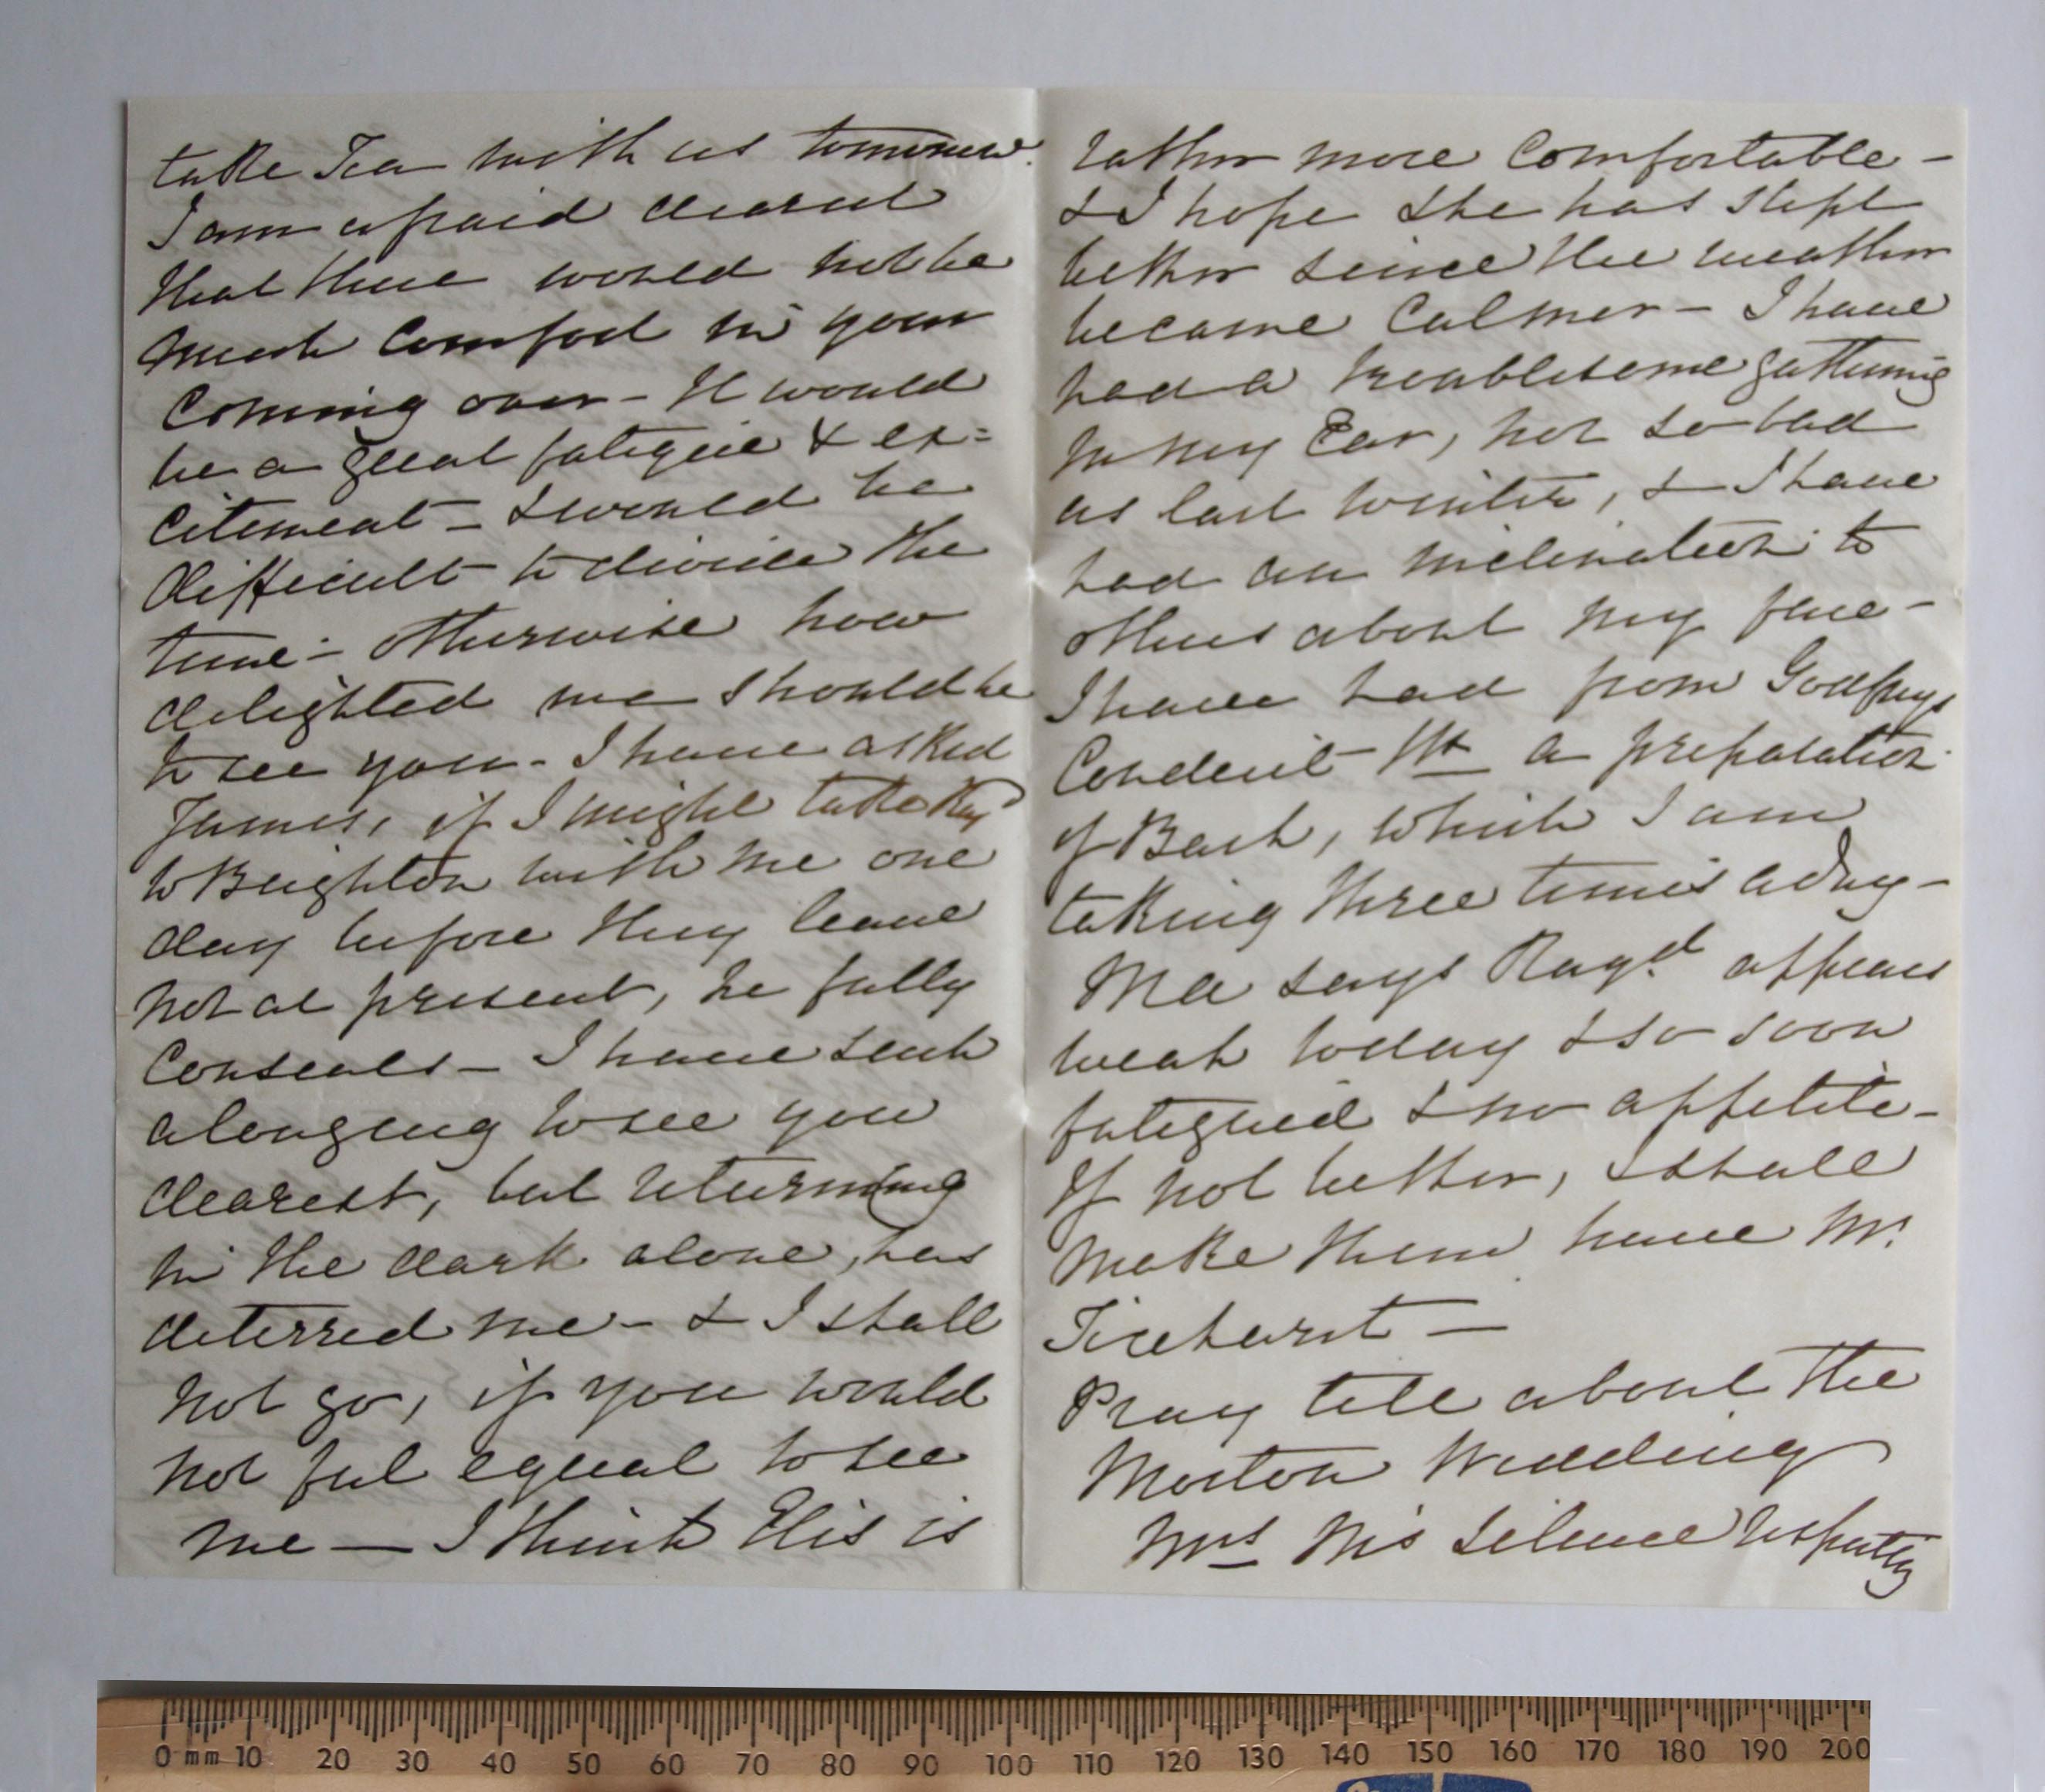 take Tea with us tomorrow.
I am afraid dearest
that there would not be
much Comfort in your
Coming over - It would
be a great fatigue & ex=
citement - & would be
difficult to divide the
time - otherwise how
delighted we should be
to see you - I have asked
James, if I might take Ray
to Brighton with me one
day before they leave
not at present, he fully
Consents - I have such
a longing to see you
dearest, but returning
in the dark alone, has
deterred me - & I shall
not go, if you would
not feel equal to see
me - I think Elis is
rather more Comfortable -
& I hope she has slept
better since the weather
became Calmer - I have
had a troublesome gathering
in my Ear, not so bad
as last Winter, & I have
had an inclination to
others about my face -
I have had from Godfreys
Conduit St a preparation
of Bark, which I am
taking three times a day -
Ma says Rayd. appears
weak today & so soon
fatigued & no appetite -
If not better, I shall
make them have Mr
Ticehurst -
Pray tell about the
Morton Wedding
Mrs M's silence respecting
0 mm 10 20 30 40 50 60 70 80 90 100 110 120 130 140 150 160 170 180 190 200